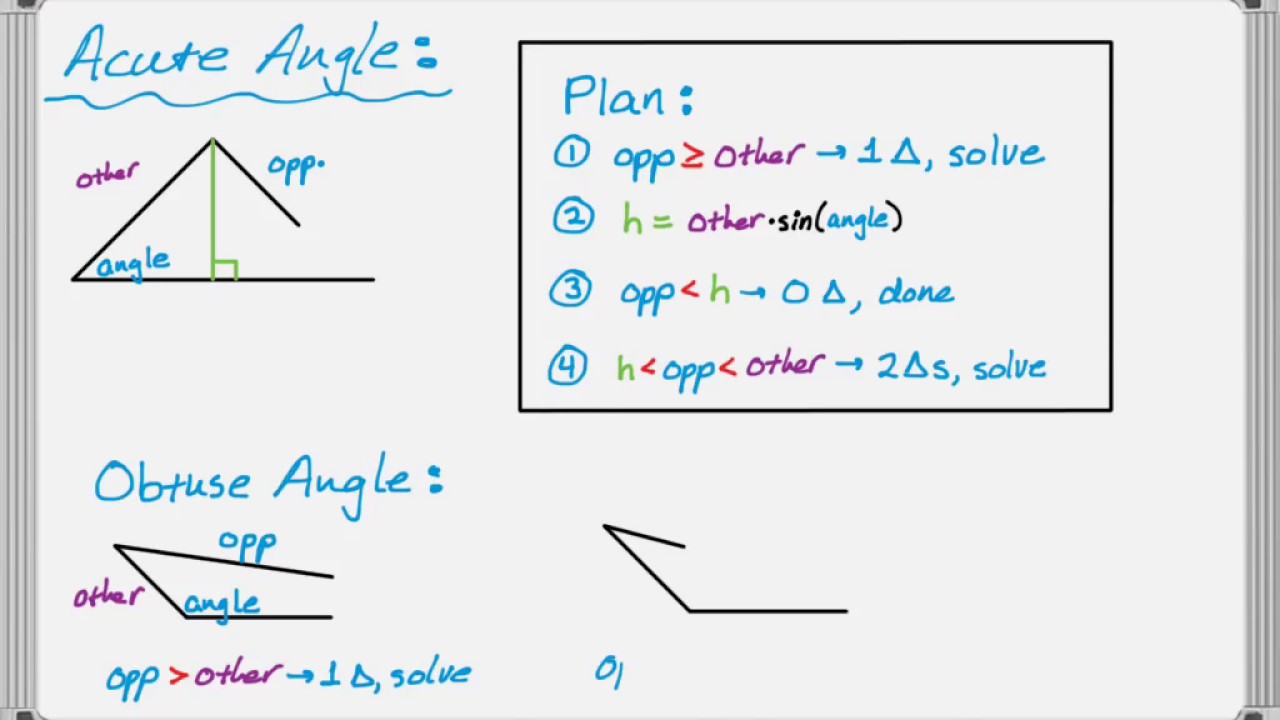 Acute Angle:
other
opp.
angle
Plan:
① opp ≥ other → 1 Δ, solve
② h = other·sin(angle)
③ opp < h → 0 Δ, done
④ h < opp < other → 2 Δs, solve
Obtuse Angle:
opp
other
angle
opp > other → 1 Δ, solve